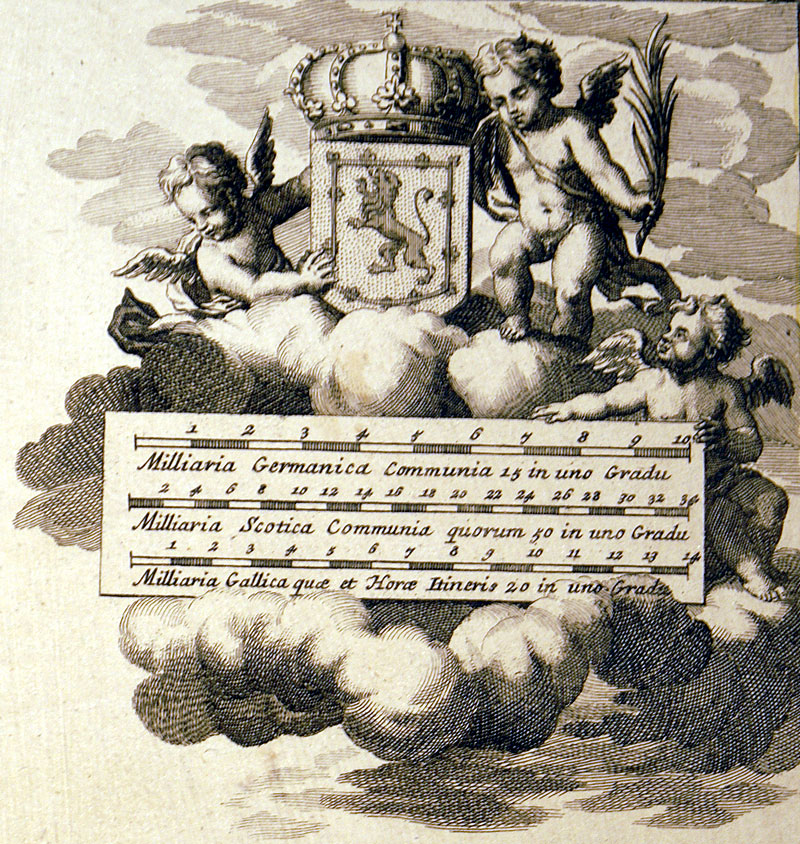 1 2 3 4 5 6 7 8 9 10
Milliaria Germanica Communia 15 in uno Gradu
2 4 6 8 10 12 14 16 18 20 22 24 26 28 30 32 34
Milliaria Scotica Communia quorum 50 in uno Gradu
1 2 3 4 5 6 7 8 9 10 11 12 13 14
Milliaria Gallica quæ et Horæ Itineris 20 in uno Gradu